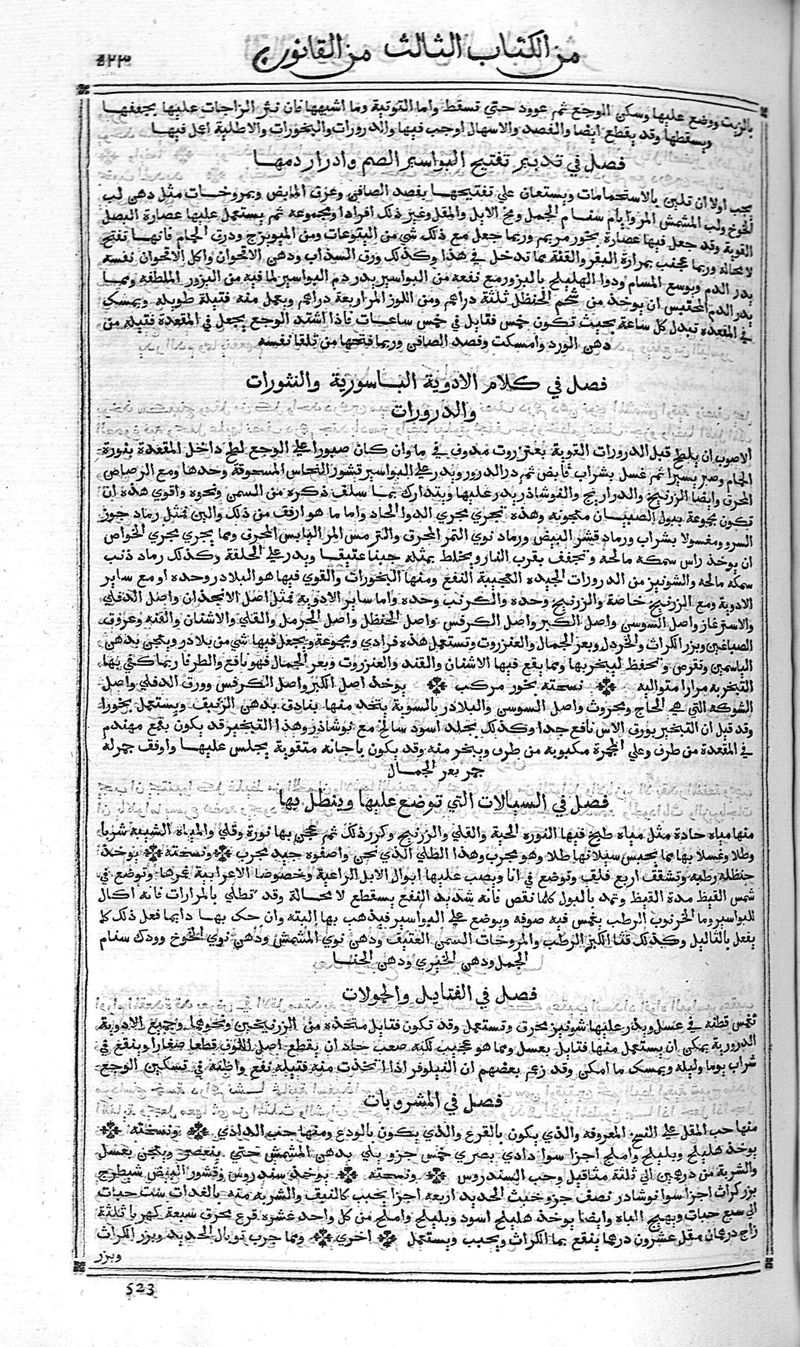 ٥٢٣
من الكتاب الثالث من القانون
بالزيت ووضع عليها وسكن الوجع ثم عوود حتي تسقط واما التوتية وما اشبهها فان نثر الزاجات عليها يجففها
ويسقطها وقد يقطع ايضا والفصد والاسهال اوجب فيها والدرورات والبخورات والاطلية اعمل فيها
فصل في تدبير تفتيح البواسير الصم وادرار دمها
يجب اولا ان تلين بالاستحمامات ويستعان علي تفتيحها بفصد الصافن وعرق المابض وبمروخات مثل دهن لب
الخوخ ولب المشمش المر وايام سنام الجمل ومخ الابل والمقل وغير ذلك افرادا ومجموعه ثم يستعمل عليها عصارة البصل
القوية وقد جعل فيها عصارة بخور مريم وربما جعل مع ذلك شي من اليتوعات ومن الميويزج ودرق الحمام فانها تفتح
لا محالة وربما عجنت بمرارة البقر والقنة مما تدخل في هذا وكذلك ورق السذاب ودهن الاقحوان واكل الاقحوان نفسه
يدر الدم ويوسع المسام ودوا الهليلج بالبزور مع نفعه من البواسير يدر دم البواسير لما فيه من البزور الملطفه ومما
يدر الدم المحتبس ان يوخذ من شحم الحنظل ثلثة دراهم ومن اللوز المر اربعة دراهم ويعمل منه فتيلة طويله ويمسك
في المقعده تبدل كل ساعة بحيث تكون خمس فتايل في خمس ساعات فاذا اشتد الوجع يجعل في المقعدة فتيله من
دهن الورد وامسكت وفصد الصافن وربما فتحها من تلقا نفسه
فصل في كلام الادوية الباسورية والنثورات
والدرورات
الاصوب ان يلطخ قبل الدرورات القوية بعنزروت مدوف في ما وان كان صبورا علي الوجع لطخ داخل المقعدة بنورة
الحمام وصبر يسيرا ثم غسل بشراب قابض ثم در الدرور ويدر علي البواسير قشور النحاس المسحوقة وحدها ومع الرصاص
المحرق وايضا الزرنيخ والدراريح والنوشاذر يدر عليها ويتدارك بما سلف ذكره من السمن ونحوه واقوي هذه ان
تكون مجموعة ببول الصبيان معجونه وهذه تجري مجري الدوا الحاد واما ما هو ارفق من ذلك والين فمثل رماد جوز
السرو ومغسولا بشراب ورماد قشر البيض ورماد نوي التمر المحرق والترمس المر اليابس المحرق ومما يجري مجري الخواص
ان يوخذ راس سمكه مالحه وتجفف بقرب النار ويخلط بمثله جبنا عتيقا ويدر علي الحلقة وكذلك رماد ذنب
سمكه مالحه والشونيز من الدرورات الجيده العجيبة النفع ومنها البخورات والقوي فيها هو البلادر وحده او مع ساير
الادوية ومع الزرنيخ خاصة والزرنيخ وحده والكرنب وحده واما ساير الادوية فمثل اصل الانجدان واصل الدفلي
والاسترغاز واصل السوسن واصل الكبر واصل الكرفس واصل الحنظل واصل الحرمل والقلي والاشنان والقنه وعروق
الصباغين وبزر الكراث والخردل وبعر الجمال والعنزروت وتستعمل هذه فرادي ومجموعة ويجعل فيها شي من بلادر ويعجن بدهن
الياسمين وتقرص وتحفظ ليتبخر بها ومما يقع فيها الاشنان والقند والعنزروت وبعر الجمال فهو نافع والطرفا ربما كفي بها
التبخر به مرارا متواليه ❈ نسخته بخور مركب ❈ يوخذ اصل الكبر واصل الكرفس وورق الدفلي واصل
الشوكه التي هي الحاج ومحروث واصل السوسن والبلادر بالسوية يتخذ منها بنادق بدهن الزنبق ويستعمل بخورا
وقد قيل ان التبخير بورق الاس نافع جدا وكذلك بجلد اسود سالخ مع نوشاذر وهذا التبخير قد يكون بقمع مهندم
في المقعدة من طرف وعلي المجمرة مكبوبه من طرف ويبخر منه وقد يكون باجانه متقوبة يجلس عليها واوفق جمر له
جمر بعر الجمال
فصل في السيالات التي توضع عليها وينطل بها
منها مياه حادة مثل مياه طبخ فيها النوره الحية والقلي والزرنيخ وكرر ذلك ثم عجن بها نورة وقلي والمياه الشبيه شربا
وطلا وغسلا بها مما يحبس سيلانها طلا وهو مجرب وهذا الطلي الذي نحن واصفوه جيد مجرب ❈ ونسخته ❈ يوخذ
حنظله رطبه وتشقف اربع فلق وتوضع في انا ويصب عليها ابوال الابل الراعية وخصوصا الاعرابية غمرها وتوضع في
شمس القيظ مدة القيظ وتمد بالبول كلما نقص فانه شديد النفع يسقطع لا محالة وقد تطلي بالمرارات فانه اكال
للبواسير وما الخرنوب الرطب يغمس فيه صوفه ويوضع علي البواسير فيذهب بها البته وان حك بها دايما فعل ذلك كما
يفعل بالثاليل وكذلك قثا الكبر الرطب والمروخات السمن العتيق ودهن نوي المشمش ودهن نوي الخوخ وودك سنام
الجمل ودهن الخيري ودهن الحنا
فصل في الفتايل والحمولات
تغمس قطنه في عسل ويدر عليها شونيز محرق وتستعمل وقد تكون فتايل متخذه من الزرنيخين ونحوهما وجميع الادوية
الدرورية يمكن ان يستعمل منها فتايل بعسل ومما هو عجيب لكنه صعب حاد ان يقطع اصل اللوف قطعا صغارا وينقع في
شراب يوما وليله ويمسك ما امكن وقد زعم بعضهم ان النيلوفر اذا اتخذت منه فتيله نفع واظنه في تسكين الوجع
فصل في المشروبات
منها حب المقل علي النسخ المعروفه والذي يكون بالقرع والذي يكون بالودع ومنها حب الدادي ❈ ونسخته ❈
يوخذ هليلج وبليلج واملج اجزا سوا دادي بصري خمس جزو يلت بدهن المشمش حتي ينعصر ويعجن بعسل
والشربة من درهمين الي ثلثة مثاقيل وحب السندروس ❈ ونسخته ❈ يوخذ سندروس وقشور البيض شيطرج
بزر كراث اجزا سوا نوشادر نصف جزو خبث الحديد اربعه اجزا يحبب كالنبق والشربه منه بالغدات ست حبات
الي سبع حبات ويهيج الباه وايضا يوخذ هليلج اسود وبليلج واملج من كل واحد عشره قرع محرق سبعة كهربا ثلثة
زاج درهمان مقل عشرون درهما ينقع بما الكراث ويحبب ويستعمل ❈ اخري ❈ ومما جرب توبال الحديد وبزر الكراث
وبزر
523